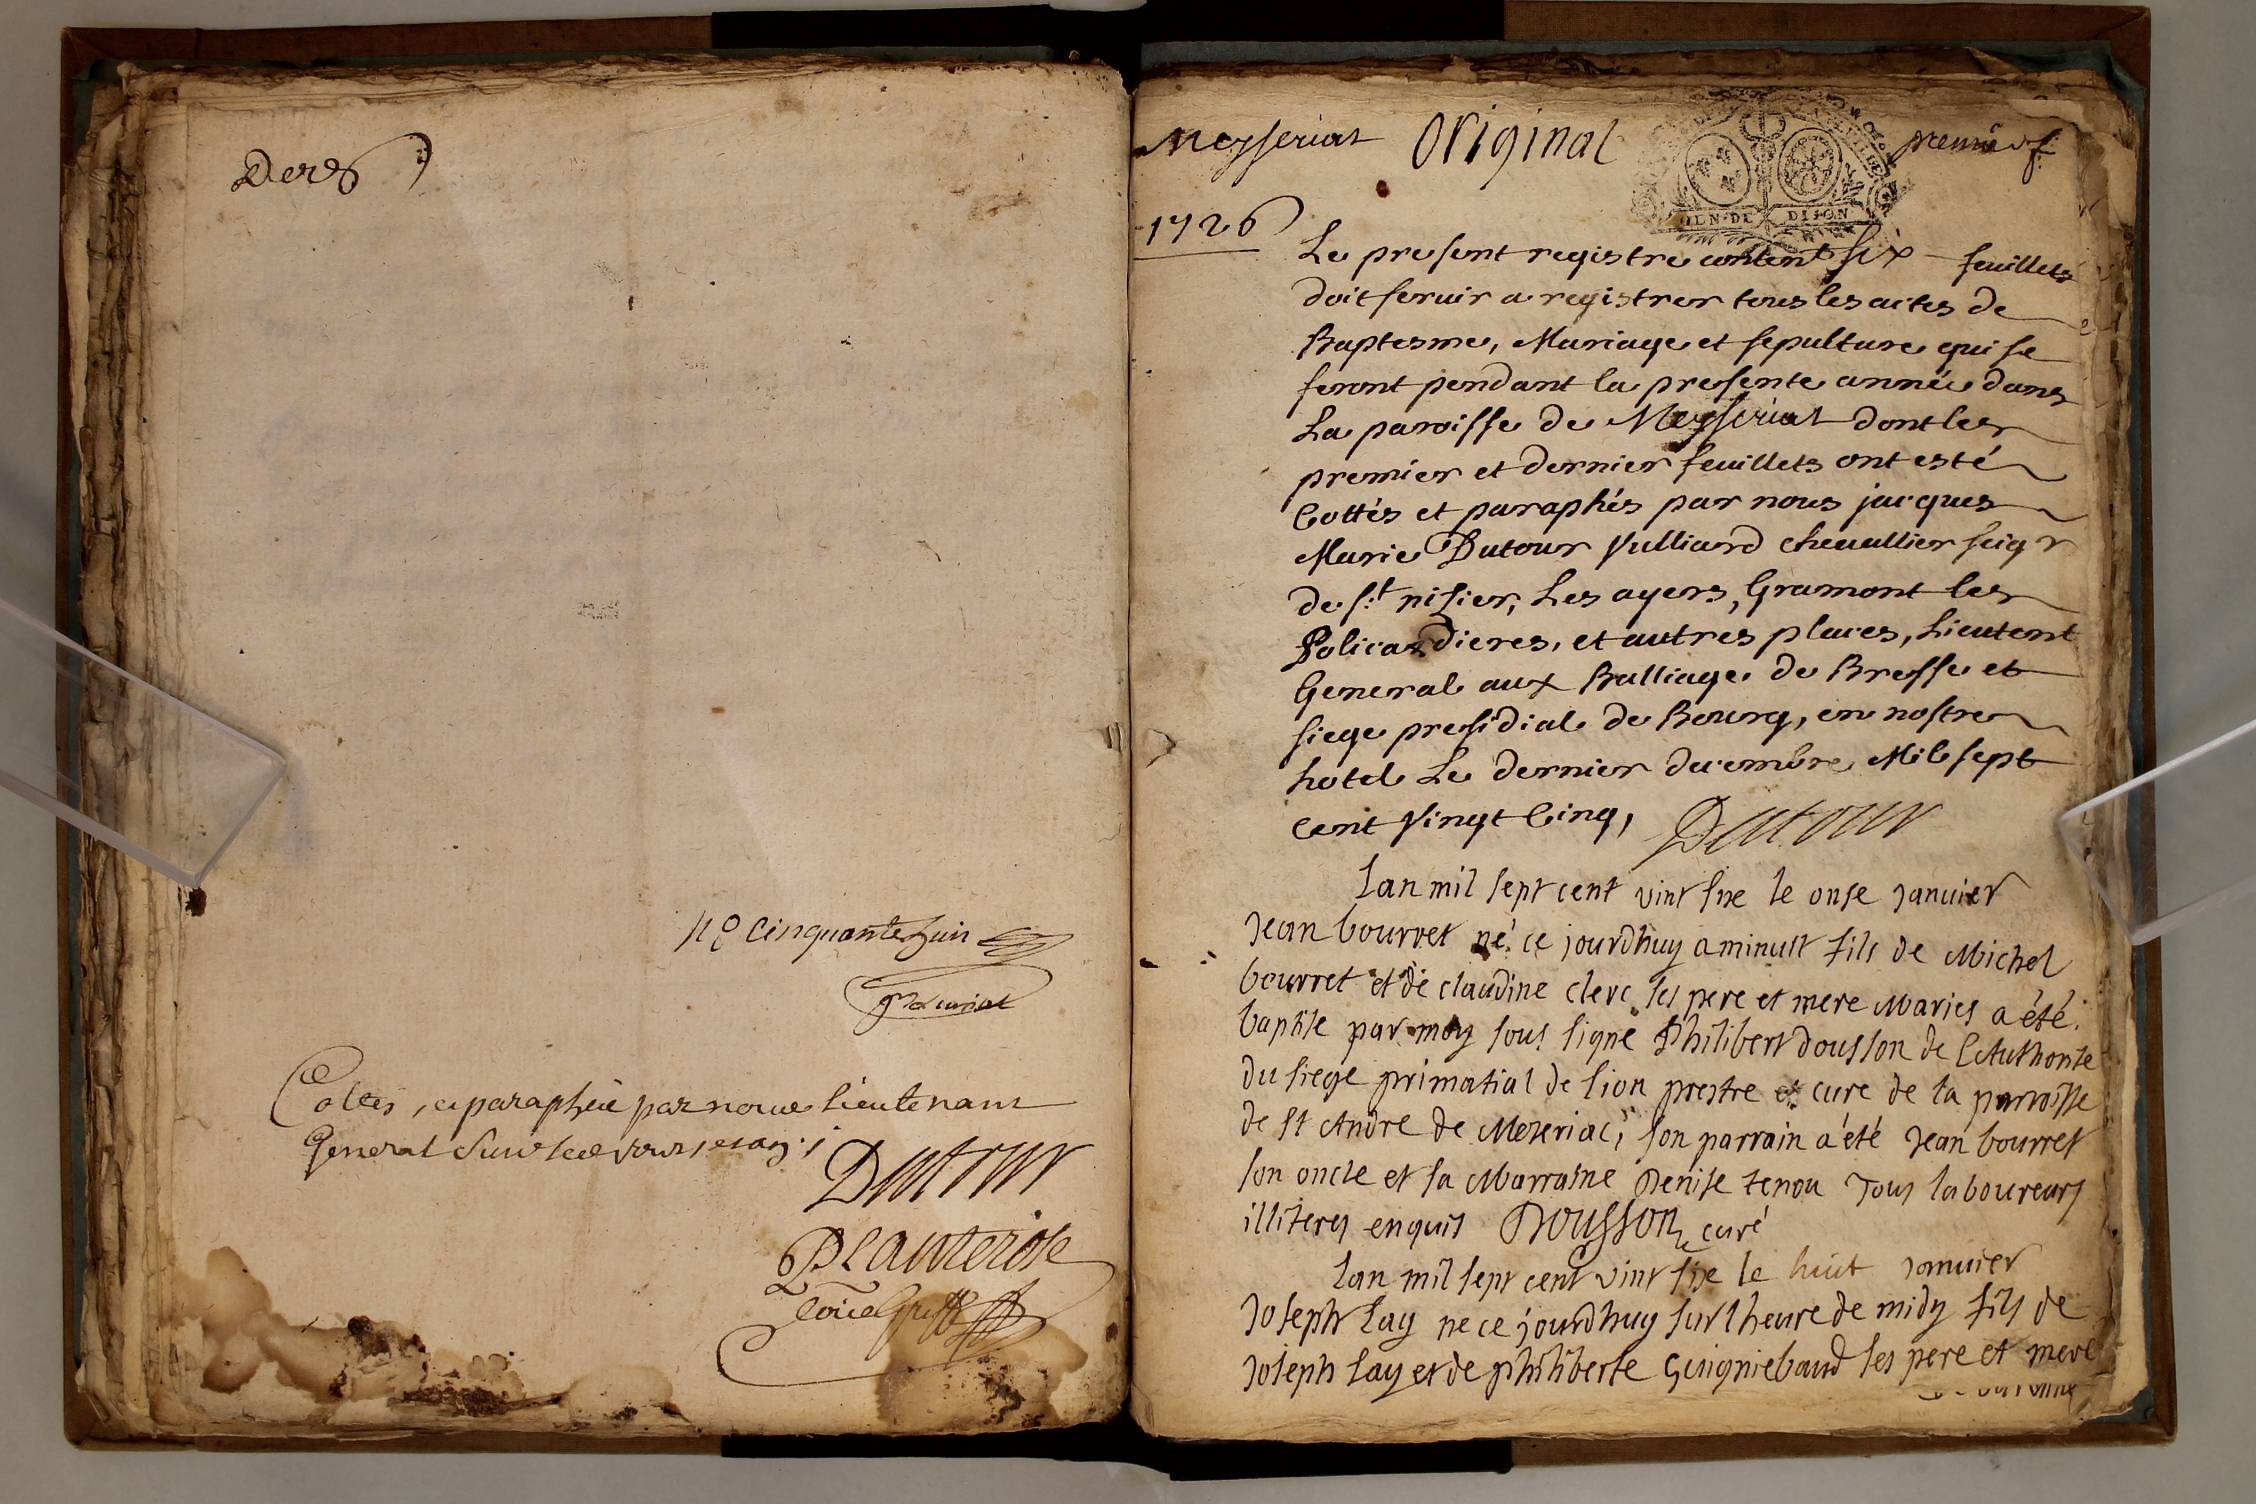 Der
cinquantehuit
Cottés, et paraphés par nous lieutenant
General Suivt led jour, et an
Dutour
Planterose
Meysseriat Original premier f
1726
GEN·DE DIJON
Le present registre content six feuillets
doit servir a registrer tous les actes de
Baptesme, Mariage et sepulture qui se
feront pendant la presente année dans
La paroisse de Meysseriat dont les
premier et dernier feuillets ont esté
Cottés et paraphés par nous jacques
Marie Dutour Vulliard chevallier seigr
de st nisier, Les ayers, Gramont les
Policardieres, et autres places, Lieutent
General aux Balliage de Bresse et
siege presidial de Bourg, en nostre
hotel Le dernier decembre Mil sept
cent Vingt Cinq, Dutour
Lan mil sept cent vint six le onse janvier
Jean bourret né ce jourdhuy a minuit fils de Michel
bourret et de claudine clerc ses pere et mere Maries a été
baptise par moy sous signé Philibert dousson de Lauthorite
du siege primatial de lion prestre et cure de la parroisse
de st Andre de Meseriac, son parrain a été Jean bourret
son oncle et sa Marraine Denise tenou Tous laboureurs
illiterés enquis Dousson curé
Lan mil sept cent vint six le huit janvier
Joseph Lay ne ce jourdhuy sur lheure de midy fils de
Joseph Lay et de philiberte Guigniebaud ses pere et mere